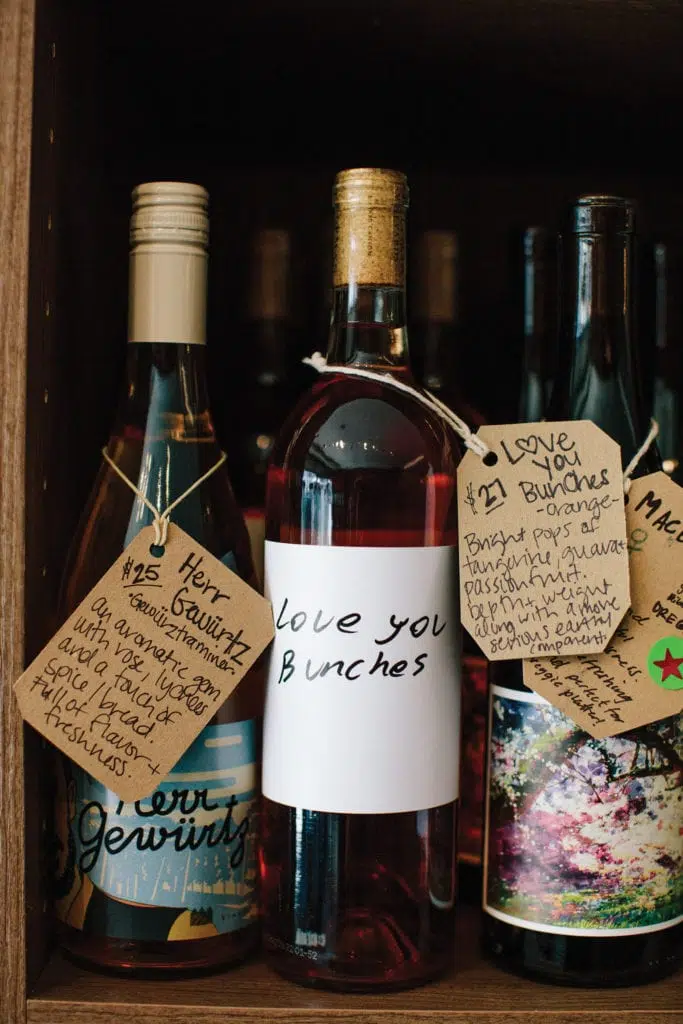 $25 Herr
Gewürtz
-Gewürztraminer-
An aromatic gem
with rose, lychees
and a touch of
spice/bread.
Full of flavor +
freshness.
Herr
Gewürtz
Love you
Bunches
Love
you
$27 Bunches
-orange-
Bright pops of
tangerine, guava +
passionfruit.
Depth + weight
along with a more
serious earthy
component.
MAC
ORE
refreshing
and perfect for
veggie platter!